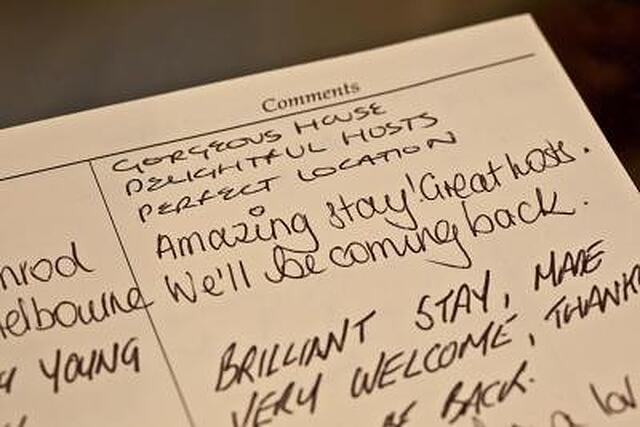 Comments
GORGEOUS HOUSE
DELIGHTFUL HOSTS
PERFECT LOCATION
Amazing stay! Great hosts.
nrod We'll be coming back.
elbourne
YOUNG BRILLIANT STAY, MADE
VERY WELCOME, THANK
BE BACK.
a lov